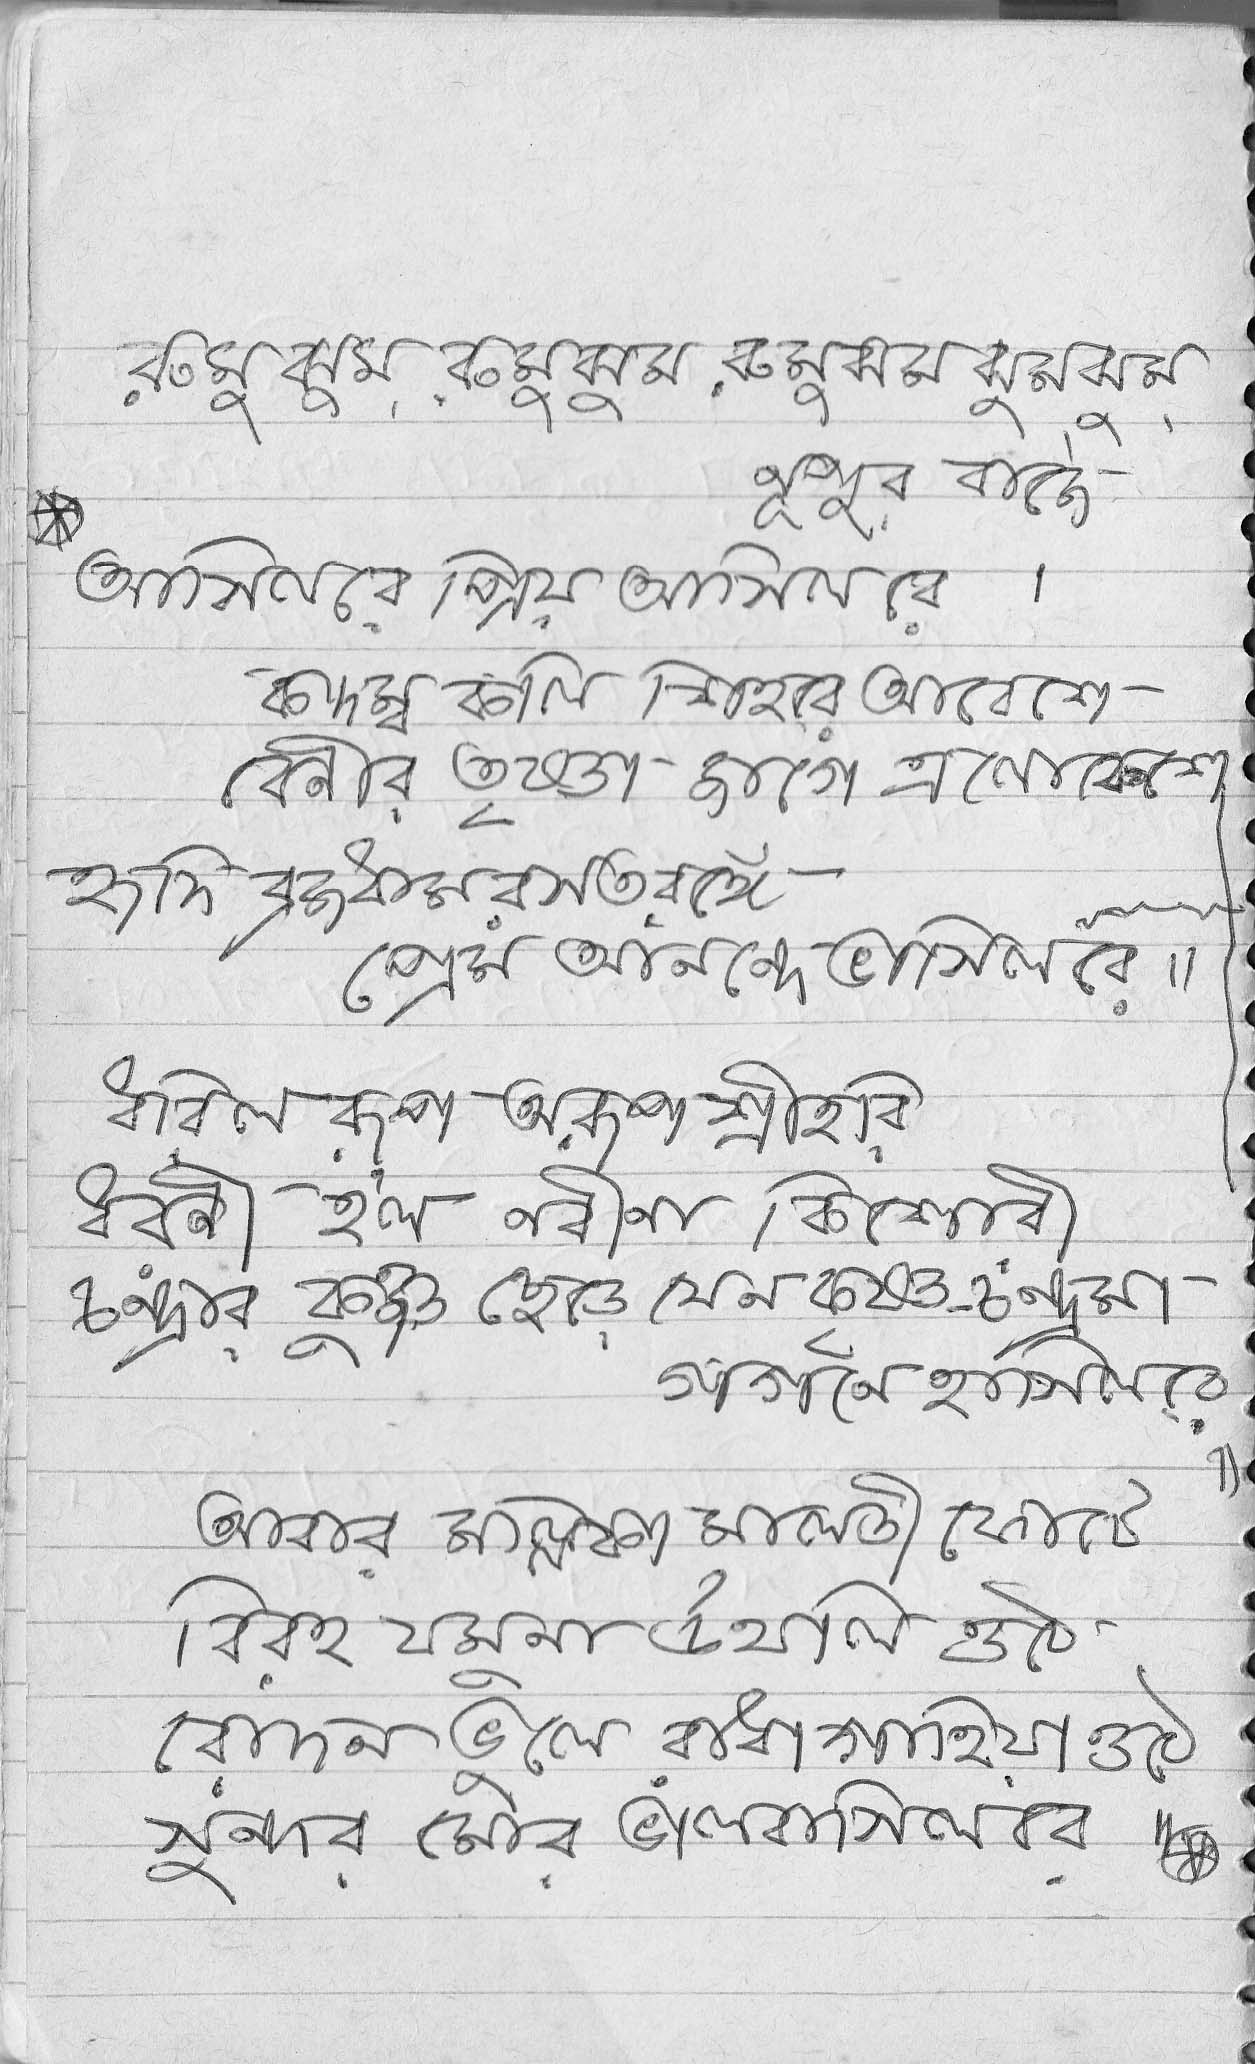 রুমুঝুম্ রুমুঝুম রুমুঝুম ঝুমঝুম্
নূপুর বাজে
আসিলরে প্রিয় আসিলরে ।
কদম্ব কলি শিহরে আবেশে
বেনীর তৃষ্ণা জাগে এলোকেশে
হৃদি ব্রজধাম রসতরঙ্গে
প্রেম আনন্দে ভাসিলরে ॥
ধরিল রূপ অরূপ শ্রীহরি
ধরনী হল নবীনা কিশোরী
চন্দ্রার কুঞ্জ ছেড়ে যেন কৃষ্ণ-চন্দ্রমা
গগনে হাসিলরে
॥
আবার মল্লিকা মালতী ফোটে
বিরহ যমুনা উথলি ওঠে
রোদন ভুলে রাধা গাহিয়া ওঠে
সুন্দর মোর ভালবাসিলরে ॥